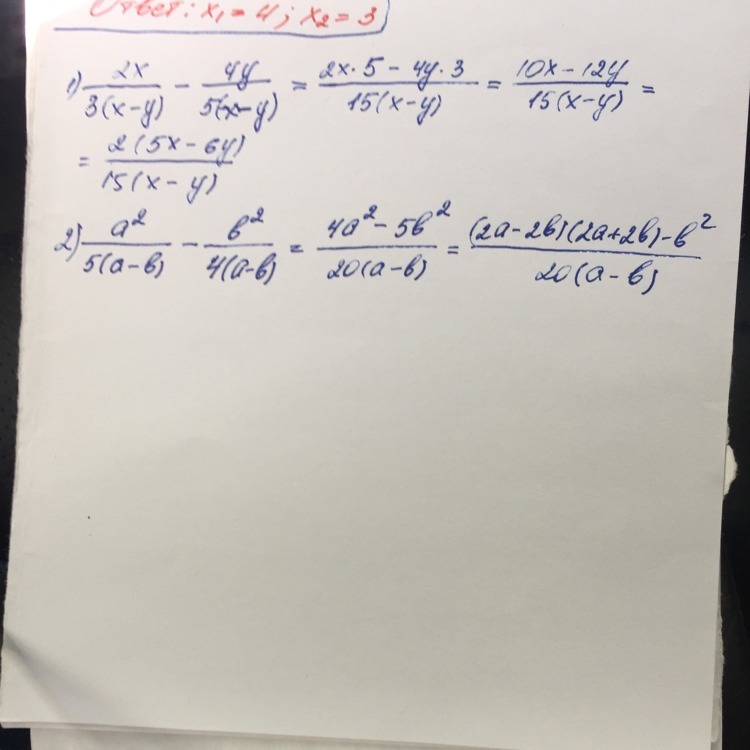 Ответ: x₁ = 4; x₂ = 3
1) 2x/3(x-y) - 4y/5(x-y) = 2x·5 - 4y·3/15(x-y) = 10x - 12y/15(x-y) =
= 2(5x - 6y)/15(x-y)
2) a²/5(a-b) - b²/4(a-b) = 4a² - 5b²/20(a-b) = (2a-2b)(2a+2b)-b²/20(a-b)